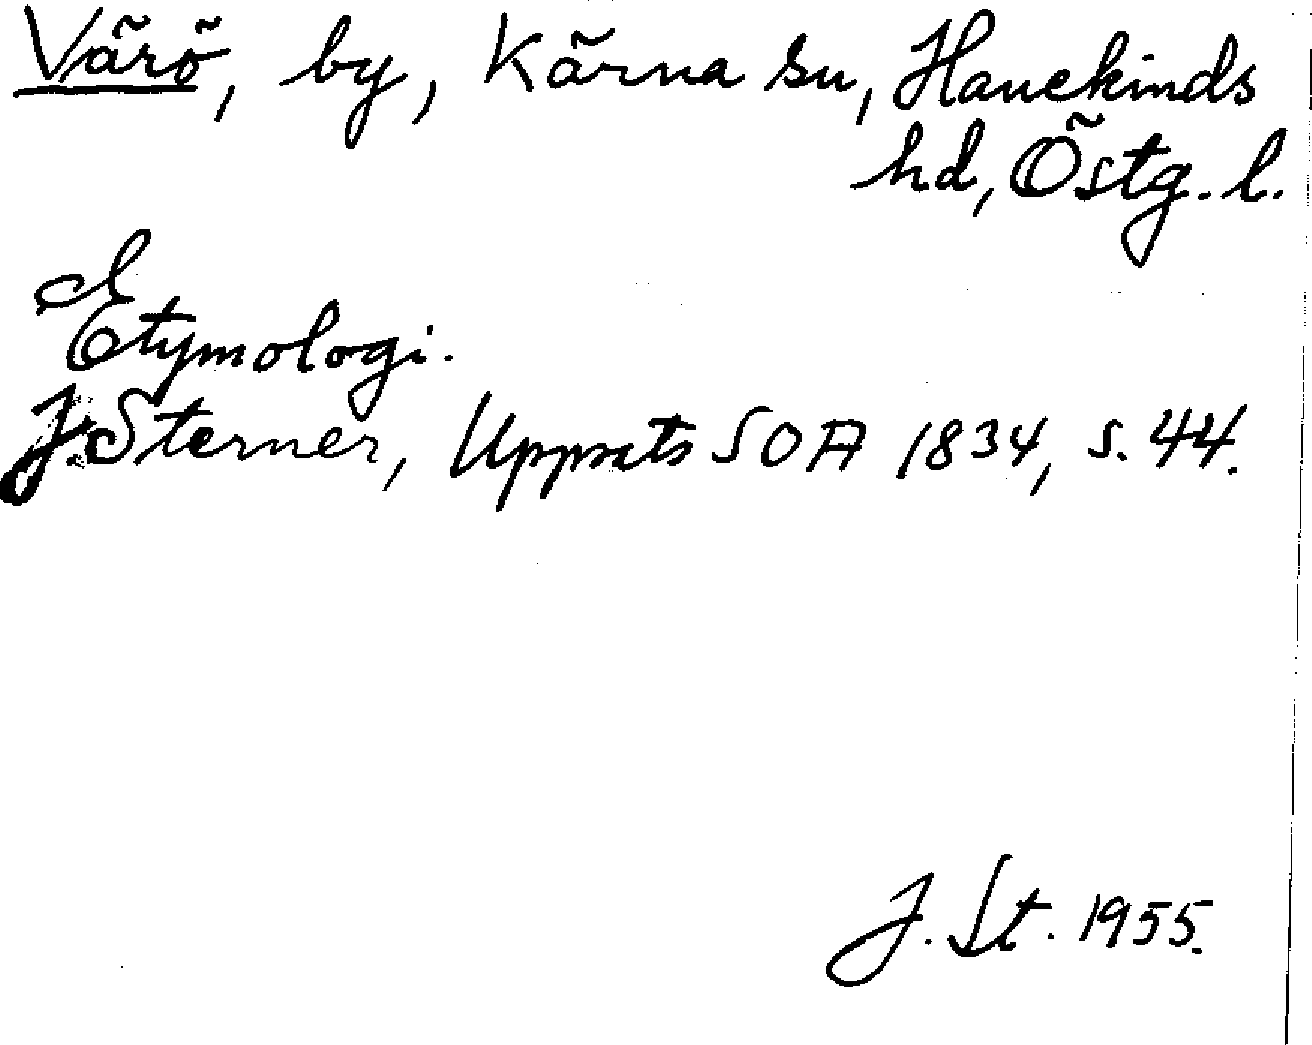 Värö, by, Kärna sn, Hanekinds
hd, Östg. l.
Etymologi.
J. Sterner, Uppsats SOA 1834, s. 44.
J. St. 1955.